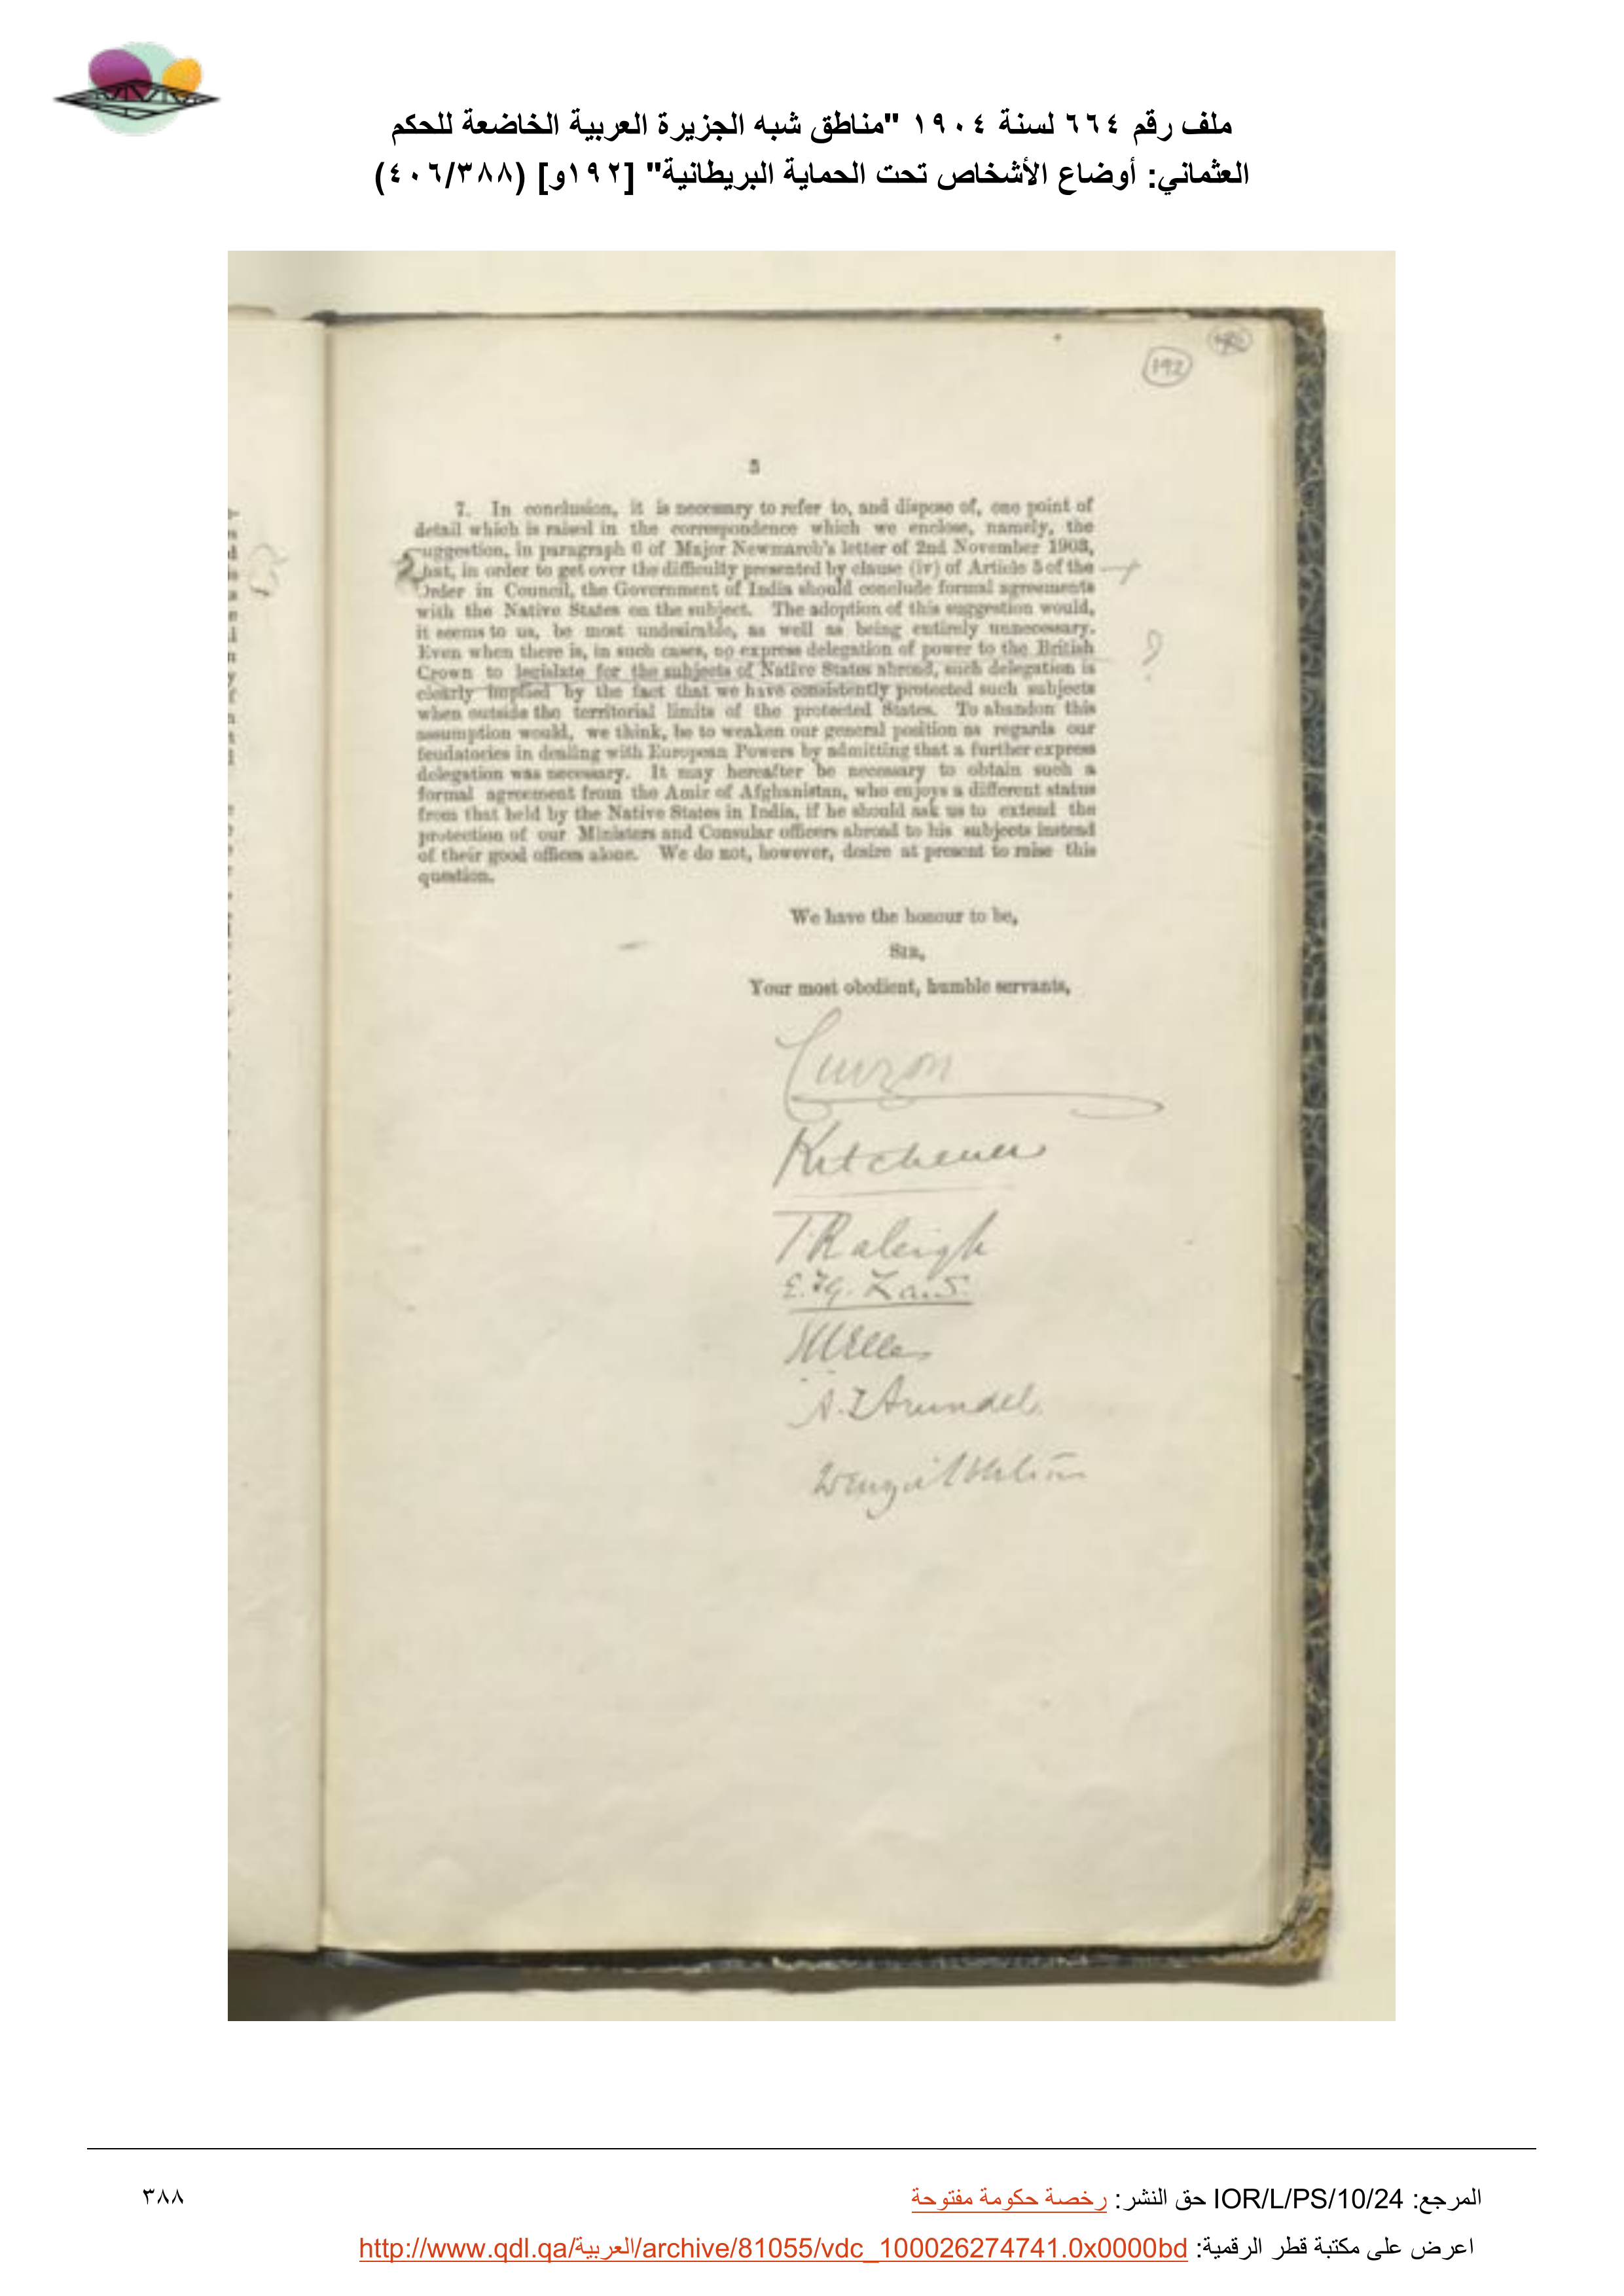 ملف رقم ٦٦٤ لسنة ١٩٠٤ "مناطق شبه الجزيرة العربية الخاضعة للحكم
العثماني: أوضاع الأشخاص تحت الحماية البريطانية" [١٩٢و] (٤٠٦/٣٨٨)
192
3
7. In conclusion, it is necessary to refer to, and dispose of, one point of
detail which is raised in the correspondence which we enclose, namely, the
suggestion, in paragraph 6 of Major Newmarch's letter of 2nd November 1903,
that, in order to get over the difficulty presented by clause (iv) of Article 3 of the
Order in Council, the Government of India should conclude formal agreements
with the Native States on the subject. The adoption of this suggestion would,
it seems to us, be most undesirable, as well as being entirely unnecessary.
Even when there is, in such cases, no express delegation of power to the British
Crown to legislate for the subjects of Native States abroad, such delegation is
clearly implied by the fact that we have consistently protected such subjects
when outside the territorial limits of the protected States. To abandon this
assumption would, we think, be to weaken our general position as regards our
feudatories in dealing with European Powers by admitting that a further express
delegation was necessary. It may hereafter be necessary to obtain such a
formal agreement from the Amir of Afghanistan, who enjoys a different status
from that held by the Native States in India, if he should ask us to extend the
protection of our Ministers and Consular officers abroad to his subjects instead
of their good offices alone. We do not, however, desire at present to raise this
question.
We have the honour to be,
SIR,
Your most obedient, humble servants,
Curzon
Kitchener
T Raleigh
E. FG. Law.
A. T Arundel
المرجع: IOR/L/PS/10/24 حق النشر: رخصة حكومة مفتوحة
٣٨٨
اعرض على مكتبة قطر الرقمية: http://www.qdl.qa/العربية/archive/81055/vdc_100026274741.0x0000bd